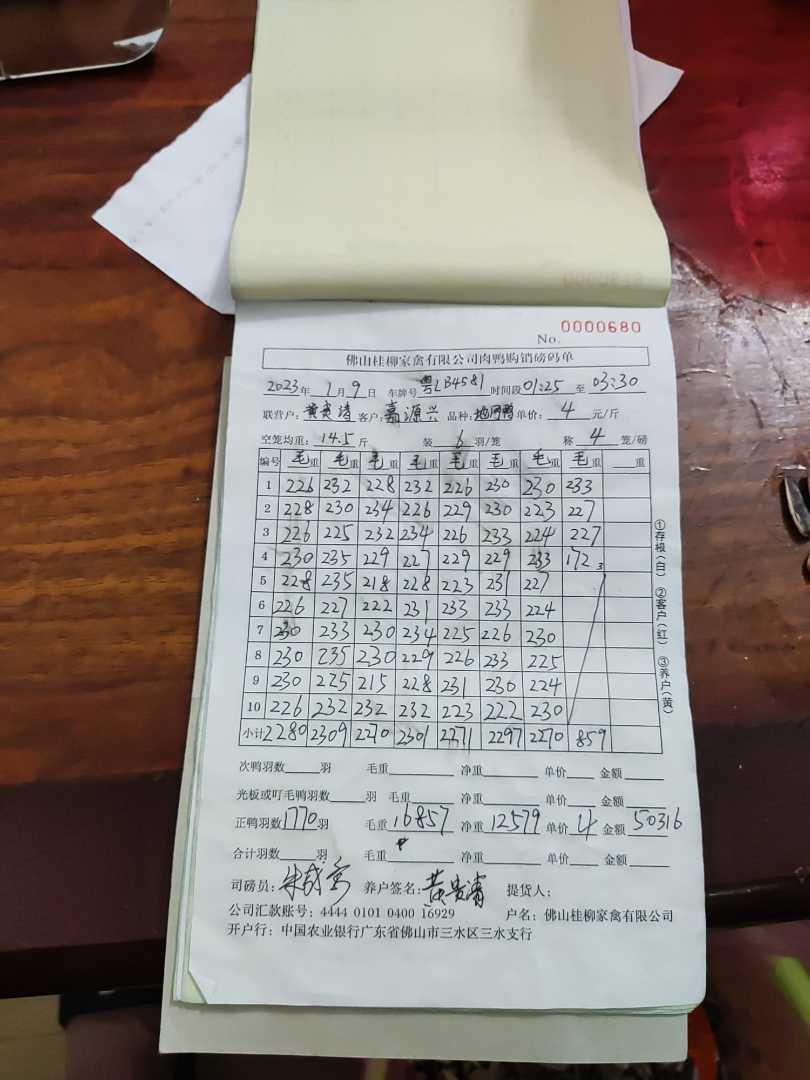 No. 0000680
佛山桂柳家禽有限公司肉鸭购销磅码单
2023年 1月 9日 车牌号 粤LB4581 时间段 01:25 至 03:30
联营户: 客户: 嘉源兴 品种: 单价: 4 元/斤
空笼均重: 14.5 斤 装 6 羽/笼 称 4 笼/磅
编号 毛重 毛重 毛重 毛重 毛重 毛重 毛重 毛重 重
1 226 232 228 232 226 230 230 233
2 228 230 234 226 229 230 223 227
3 226 225 232 234 226 233 224 227
4 230 235 229 227 229 229 233 172 3
5 228 235 218 228 223 231 227
6 226 227 222 231 233 233 224
7 230 233 230 234 225 226 230
8 230 235 230 229 226 233 225
9 230 225 215 228 231 230 224
10 226 232 232 232 223 222 230
小计 2280 2309 2270 2301 2271 2297 2270 859
①存根(白) ②客户(红) ③养户(黄)
次鸭羽数 羽 毛重 净重 单价 金额
光板或叮毛鸭羽数 羽 毛重 净重 单价 金额
正鸭羽数 1770 羽 毛重 16857 净重 12579 单价 4 金额 50316
合计羽数 羽 毛重 净重 单价 金额
司磅员: 养户签名: 提货人:
公司汇款账号: 4444 0101 0400 16929 户名: 佛山桂柳家禽有限公司
开户行: 中国农业银行广东省佛山市三水区三水支行